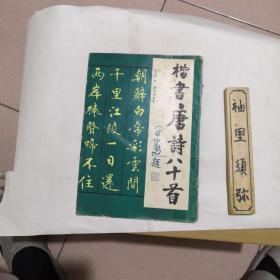 楷書唐詩八十首
題
朝辭白帝彩雲間
千里江陵一日還
兩岸猿聲啼不住
袖里須弥